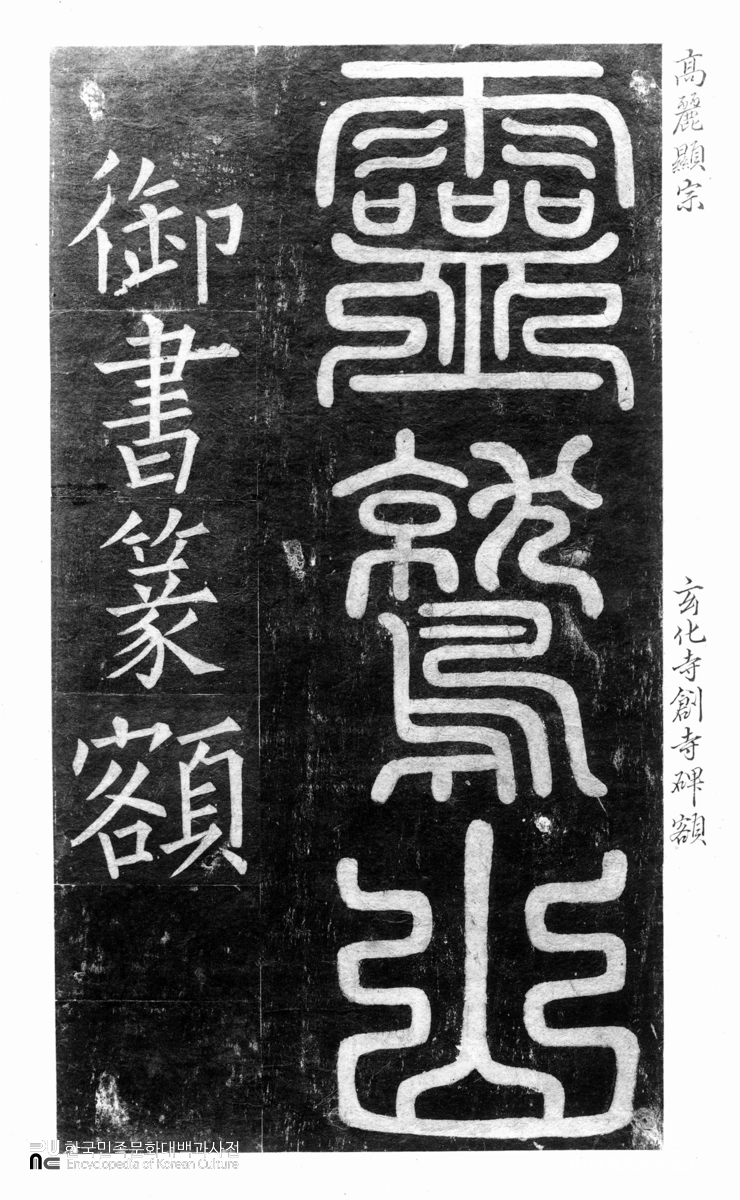 高麗顯宗
玄化寺創寺碑額
靈鷲山
御書篆額
한국민족문화대백과사전
Encyclopedia of Korean Culture